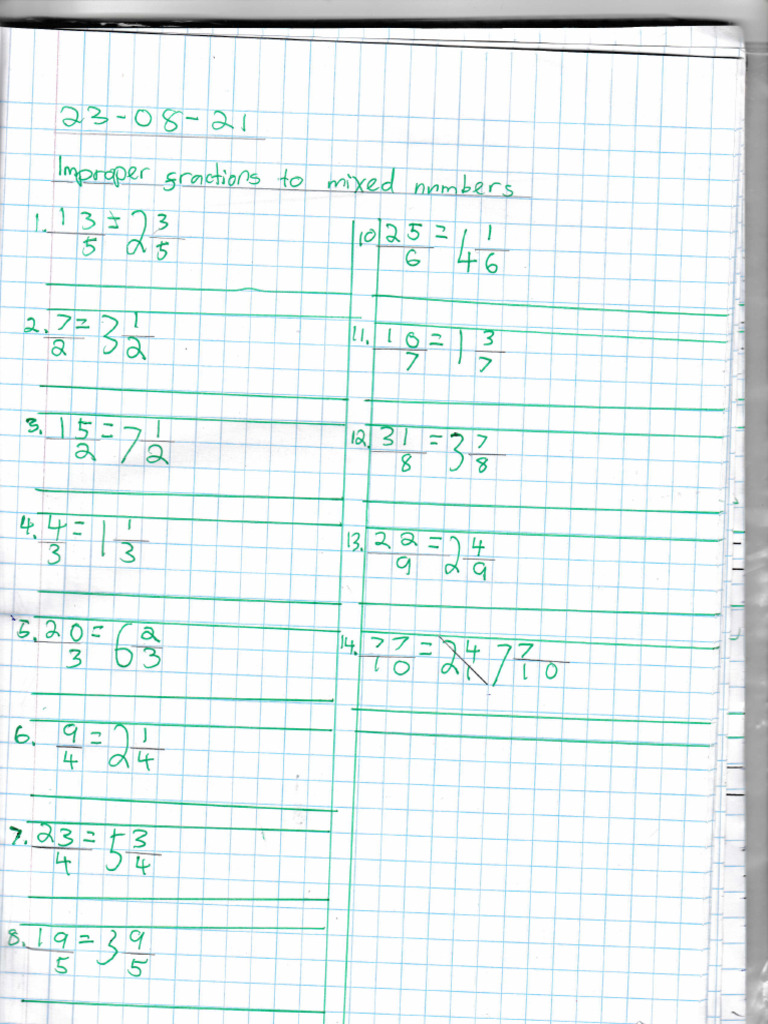 23-08-21
Improper fractions to mixed numbers
1. 13/5 = 2 3/5
2. 7/2 = 3 1/2
3. 15/2 = 7 1/2
4. 4/3 = 1 1/3
5. 20/3 = 6 2/3
6. 9/4 = 2 1/4
7. 23/4 = 5 3/4
8. 19/5 = 3 9/5
10 25/6 = 4 1/6
11. 10/7 = 1 3/7
12. 31/8 = 3 7/8
13. 22/9 = 2 4/9
14. 77/10 = 7 7/10